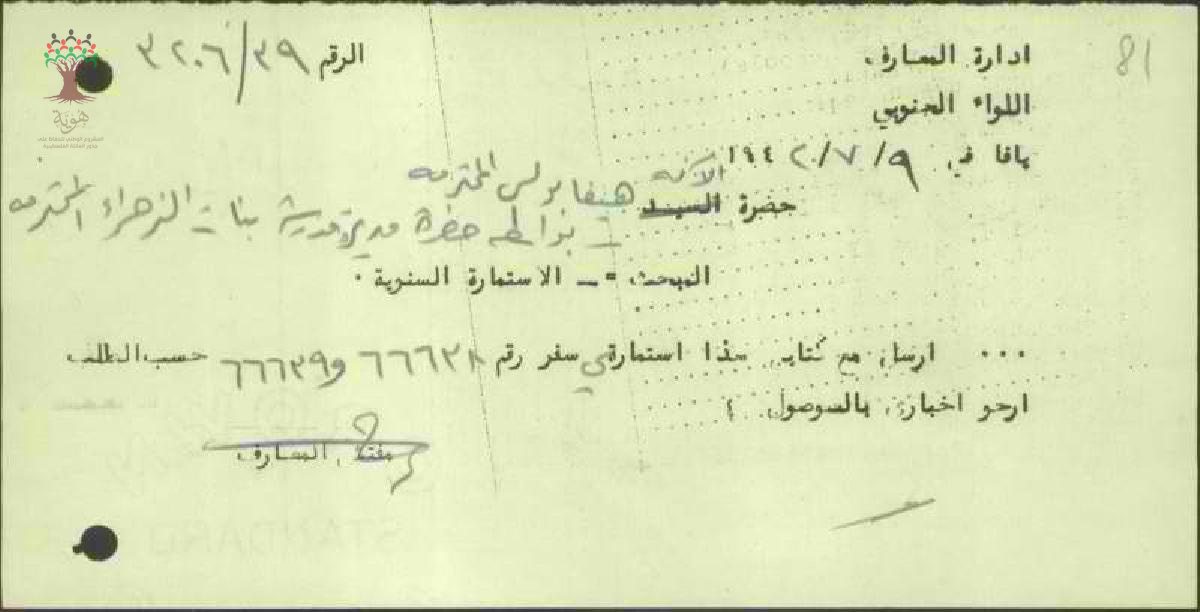 81
ادارة المعارف
الرقم ٣٢٠٦/٣٩
اللواء الجنوبي
يافا في ٩/٧/١٩٤٢
حضرة السيد الآنسه هيفا بولس المحترمه
بواسطه حضرة مديرة مدرسة بنات الزهراء المحترمه
المبحث :- الاستمارة السنوية .
... ارسل مع كتابي هذا استمارتي سفر رقم ٦٦٦٣٨ و ٦٦٦٣٩ حسب الطلب
ارجو اخباري بالوصول .
مفتش المعارف
هوية